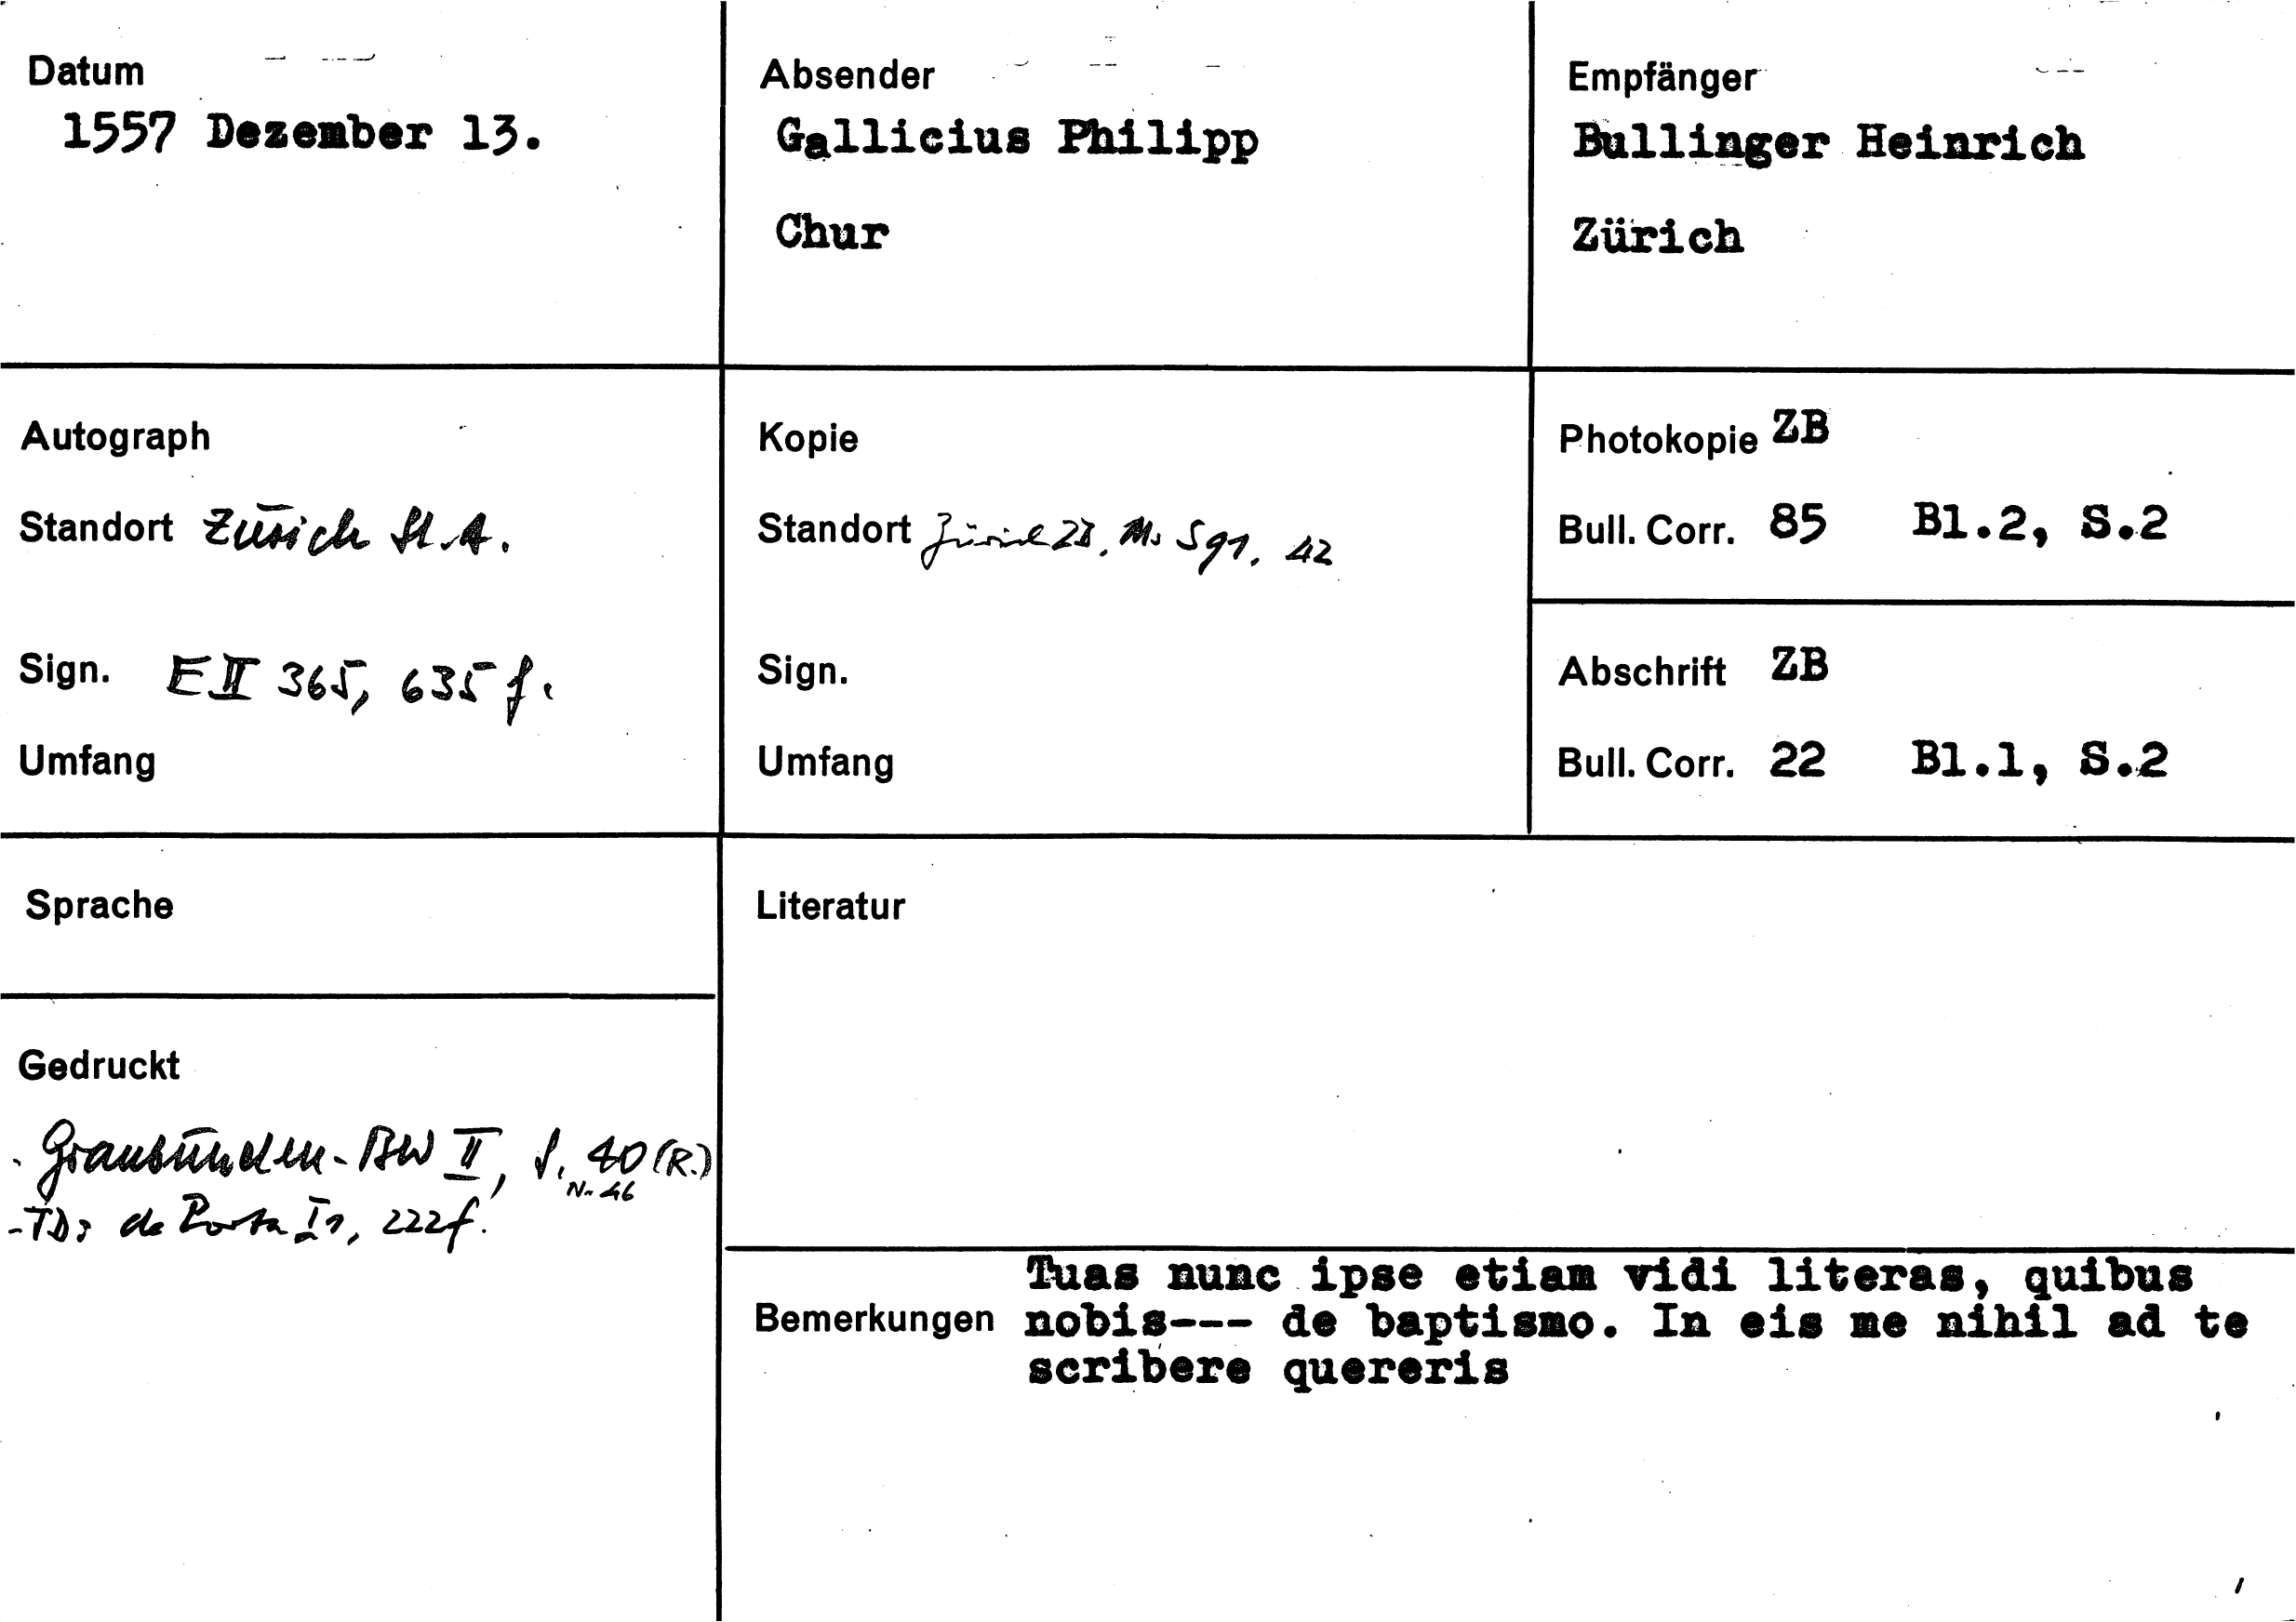 Datum
1557 Dezember 13.
Absender
Gallicius Philipp
Chur
Empfänger
Bullinger Heinrich
Zürich
Autograph
Standort Zürich St.A.
Sign. E II 365, 635 f.
Umfang
Kopie
Standort Zürich ZB, Ms S 91, 42
Sign.
Umfang
Photokopie ZB
Bull. Corr. 85 Bl.2, S.2
Abschrift ZB
Bull. Corr. 22 Bl.1, S.2
Sprache
Gedruckt
- Graubünden-BW II, S. 40 (R.)
Nr. 46
- TD: de Porta I₂, 222f.
Literatur
Bemerkungen
Tuas nunc ipse etiam vidi literas, quibus
nobis--- de baptismo. In eis me nihil ad te
scribere quereris